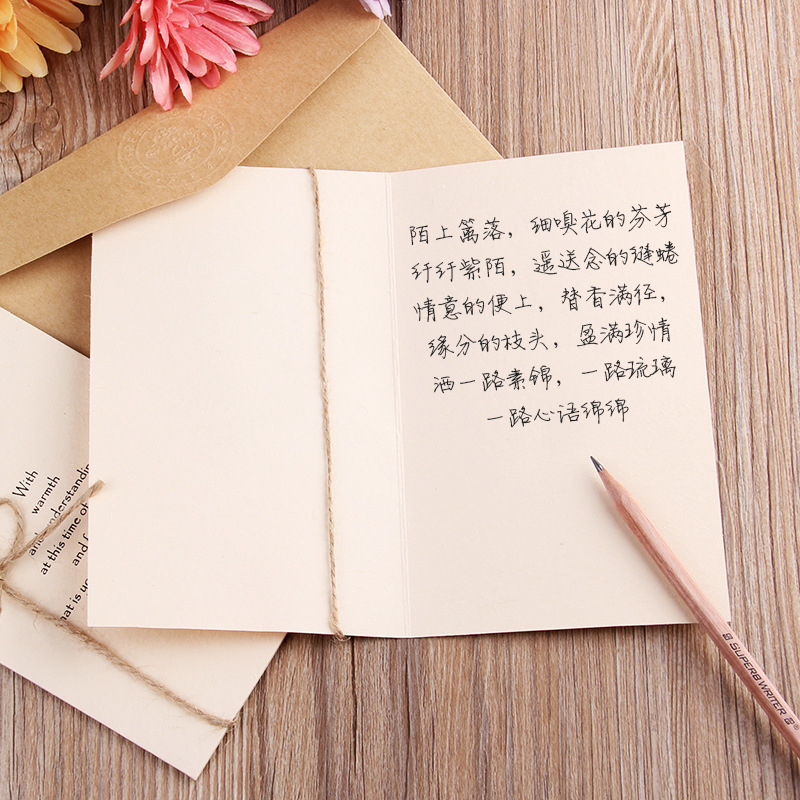 陌上篱落，细嗅花的芬芳
纤纤紫陌，遥送念的缱绻
情意的便上，替香满径，
缘分的枝头，盈满珍情
洒一路素锦，一路琉璃
一路心语绵绵
With
warmth
and understanding
at this time of
and f
hat is yo
SUPERB WRITER